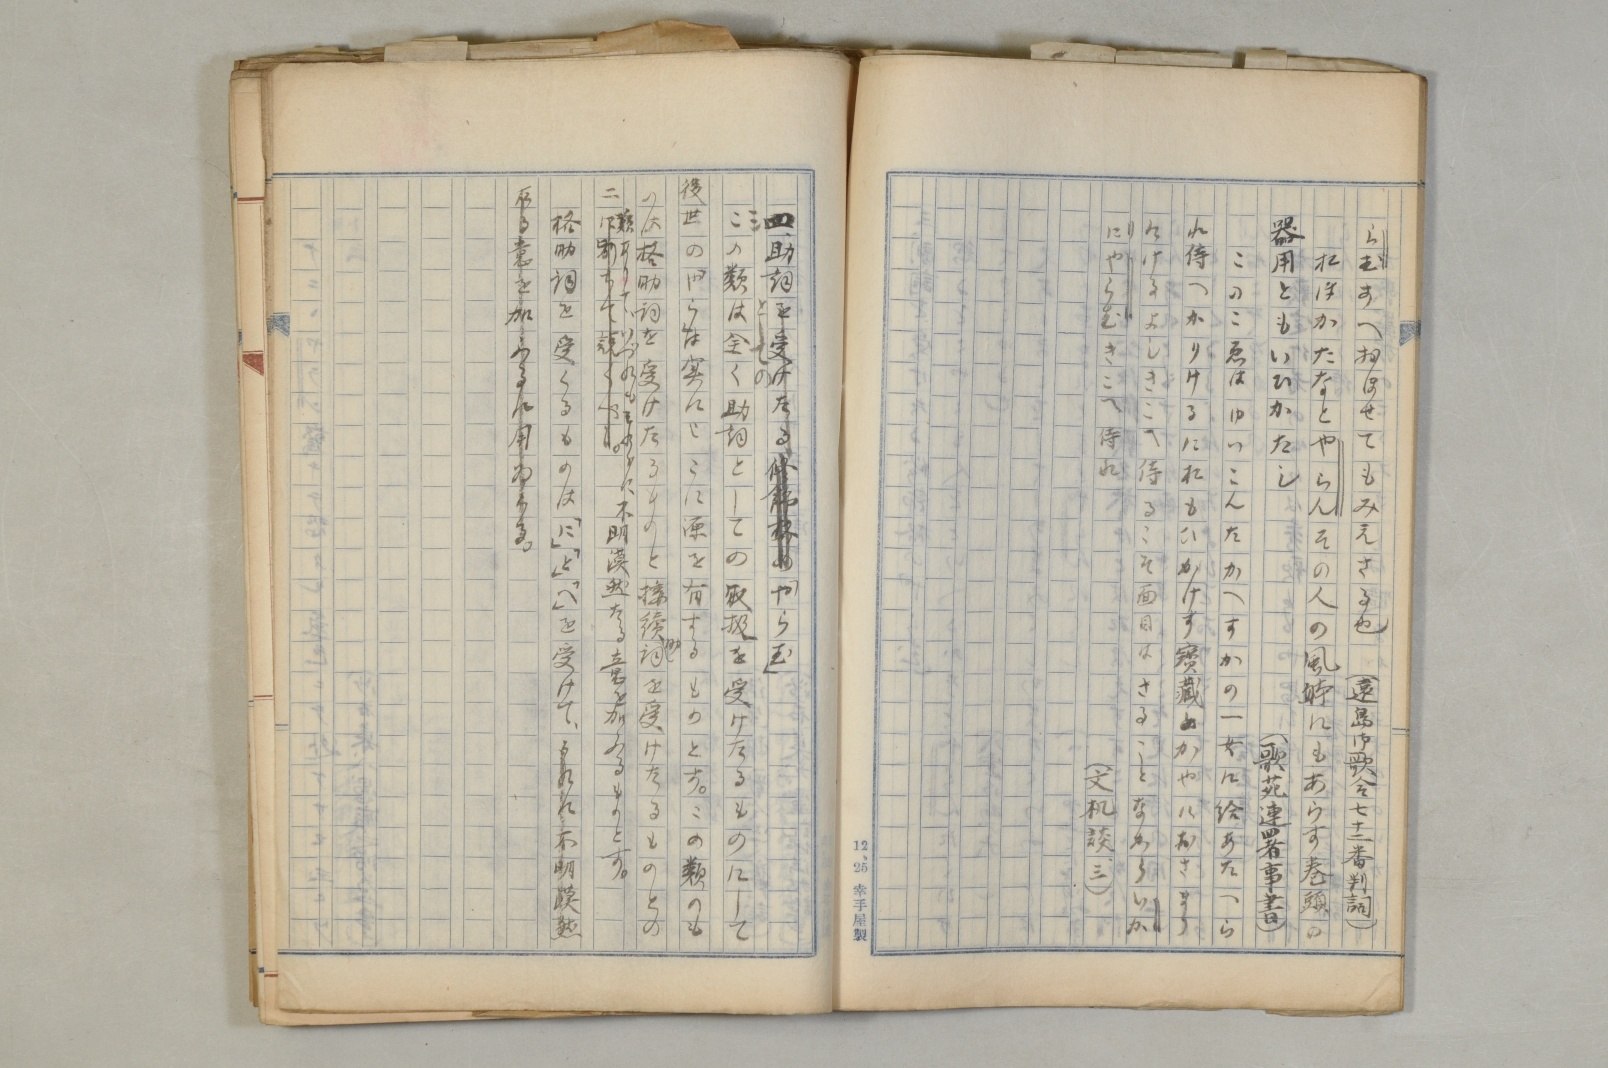 らむあへ相はせてもみえさる也
(遠島御歌合七十二番判詞)
おほかたなとやらんその人の風躰にもあらす巻頭の
器用ともいひかたし
(歌苑連署事書)
このこゑはゆいこんたかへすかの一女に給あたへら
れ侍へかりけるにおもひかけす寳蔵にかやにおさまり
にけるよしきこへ侍るこそ面目はさることなからいか
にやらむきこへ侍れ
(文机談三)
12、25 幸手屋製
四、助詞を受けたる
三
としての
「やらむ」
この類は全く助詞としての取扱を受けたるものにして
後世の「やら」は実にこゝに源を有するものとす。この類のも
のは格助詞を受けたるものと接續助詞を受けたるものとの
二類ありていづれもそのものに不明漠然たる意を加ふるものとす。
に別ちて説くべし。
格助詞を受くるものは「に」「と」「へ」を受けて、それに不明漠然
たる意を加ふるに用ゐらる。